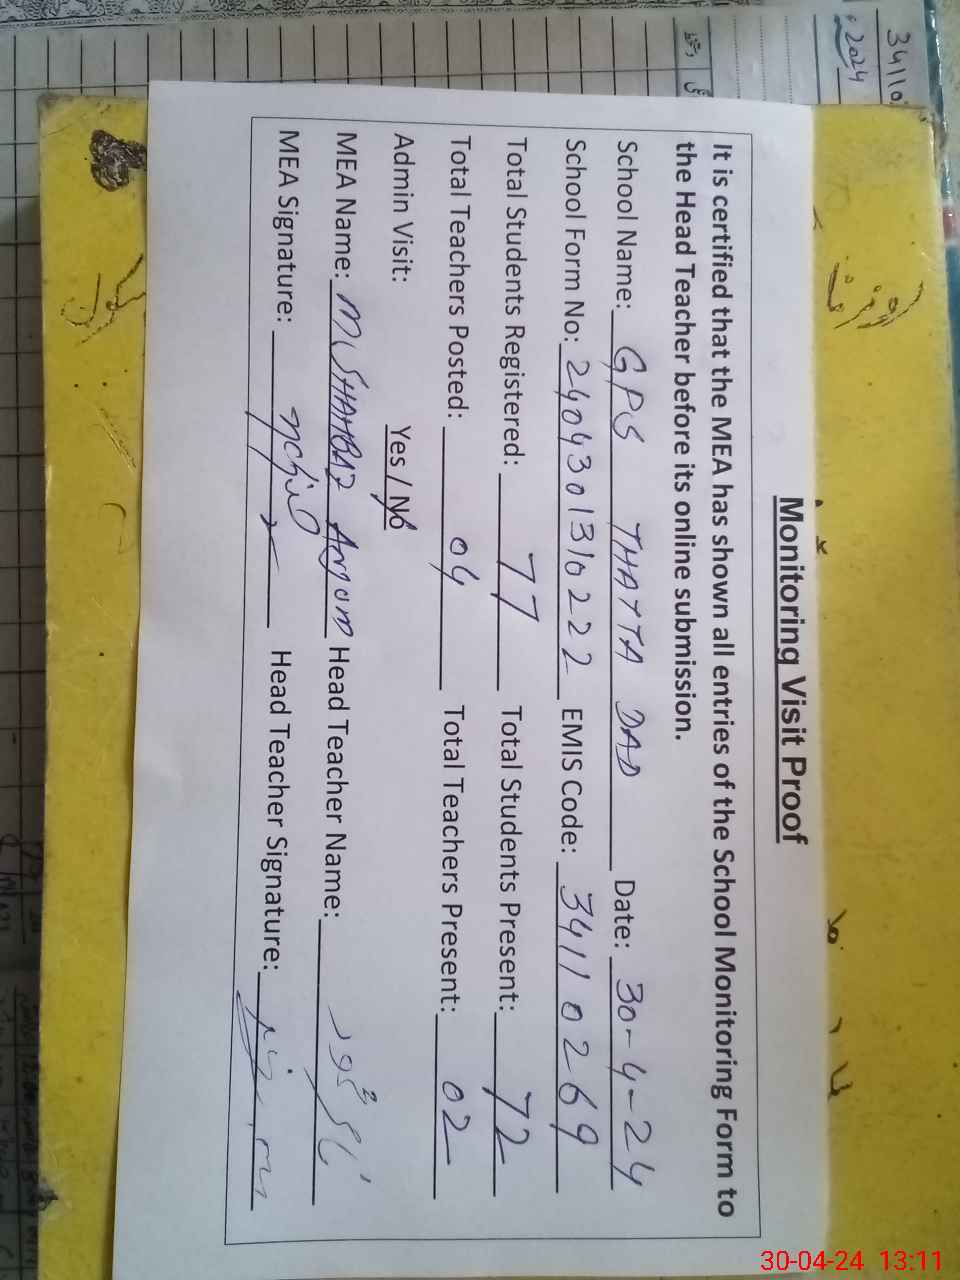 Monitoring Visit Proof
It is certified that the MEA has shown all entries of the School Monitoring Form to
the Head Teacher before its online submission.
School Name: GPS THATTA DAD Date: 30-4-24
School Form No: 2404301310222 EMIS Code: 34110269
Total Students Registered: 77 Total Students Present: 72
Total Teachers Posted: 04 Total Teachers Present: 02
Admin Visit: Yes / No
MEA Name: M. SHAHBAZ Anjum Head Teacher Name:
MEA Signature: Head Teacher Signature:
34110
2024
30-04-24 13:11